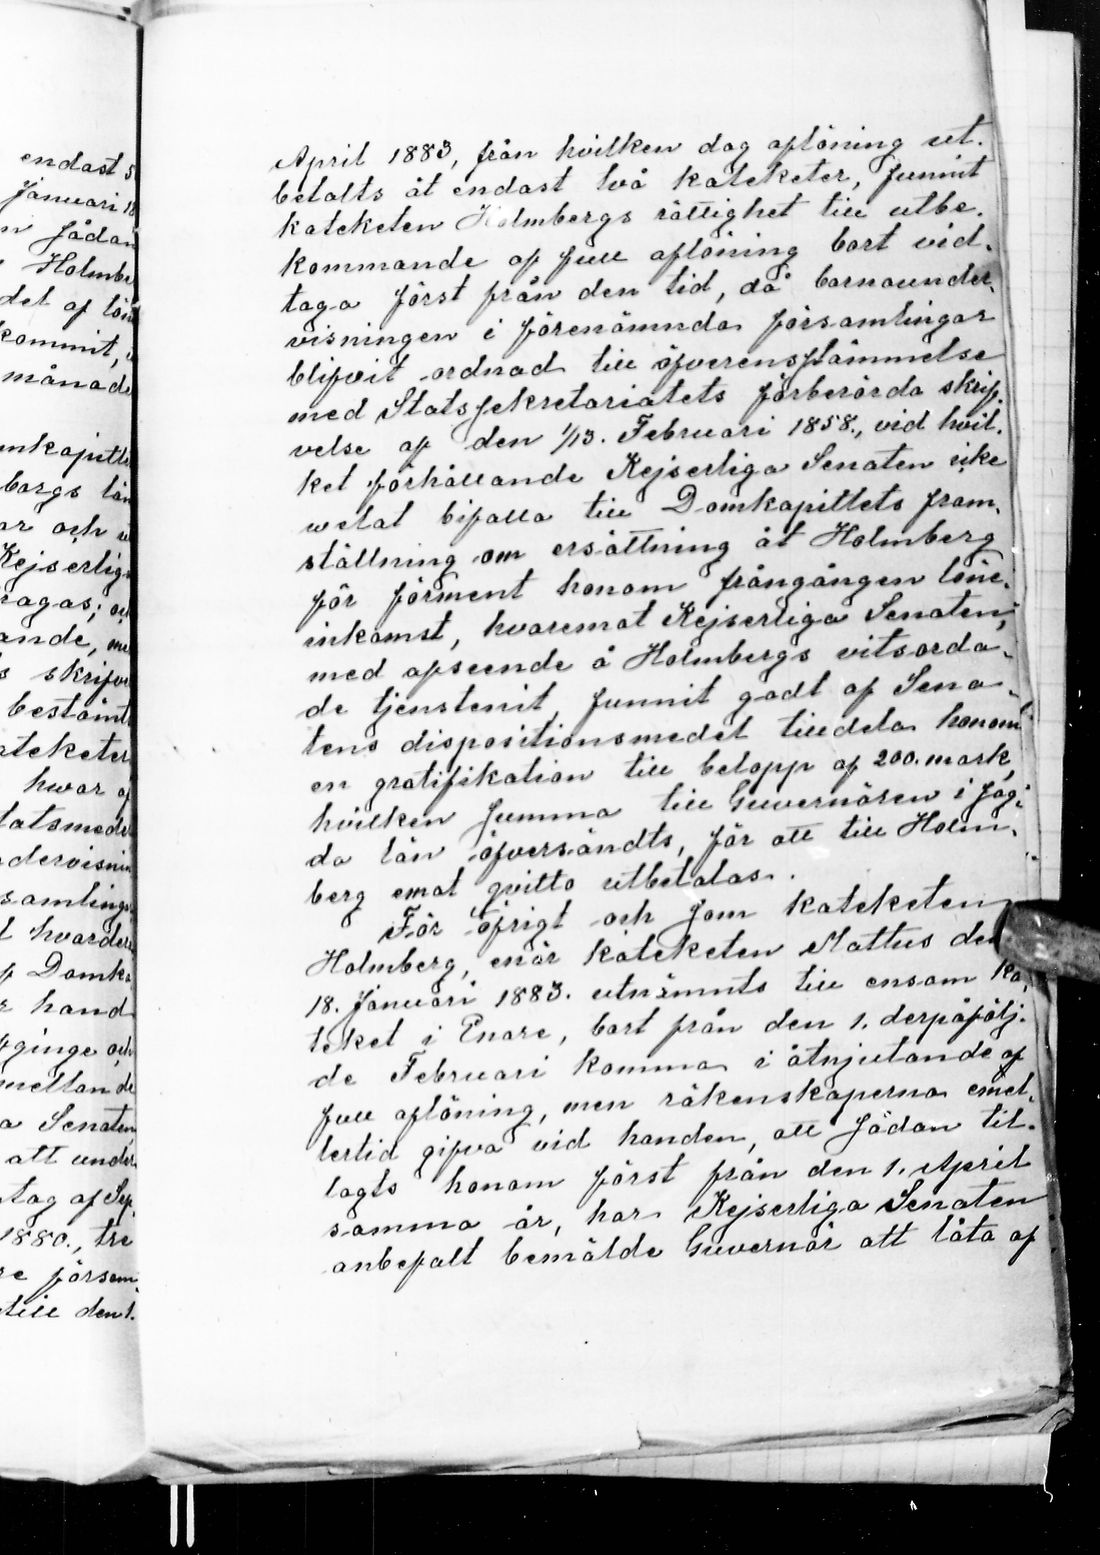 endast 5
Januari 18
n sådan
Holmbe
det af lön
kommit,
månade
mkapitle
borgs län
ar och u
Kejserliga
ragas; och
ande, me
s skrifve
bestämt
ateketer
hwar af
tatsmedel
dervisnin
samlinga
t hvardera
f Domka
r hand
ginge och
mellan de
a Senaten
att under
tag af Sep.
1880., tre
re försam.
till den 1.
April 1883, från hvilken dag aflöning ut.
betalts åt endast två kateketer, funnit
kateketen Holmbergs rättighet till utbe.
kommande af full aflöning bort vid.
taga först från den tid, då barnaunder.
visningen i förenämnda församlingar
blifvit ordnad till öfverensstämmelse
med Statssekretariatets förberörda skrif.
velse af den 1/13. Februari 1858., vid hvil.
ket förhållande Kejserliga Senaten icke
welat bifalla till Domkapitlets fram.
ställning om ersättning åt Holmberg
för förment honom frångången löne.
inkomst, hvaremot Kejserliga Senaten,
med afseende å Holmbergs vitsorda.
de tjenstenit, funnit godt af Sena.
tens dispositionsmedel tilldela honom
en gratifikation till belopp af 200. mark,
hvilken summa till Guvernören i säg.
da län öfversändts, för att till Holm.
berg emot qvitto utbetalas.
För öfrigt och som kateketen
Holmberg, enär kateketen Mattus den
18. Januari 1883. utnämnts till ensam ka.
teket i Enare, bort från den 1. derpåfölj.
de Februari komma i åtnjutande af
full aflöning, men räkenskaperna emel.
lertid gifva vid handen, att sådan til.
lagts honom först från den 1. April
samma år, har Kejserliga Senaten
anbefalt bemälde Guvernör att låta af